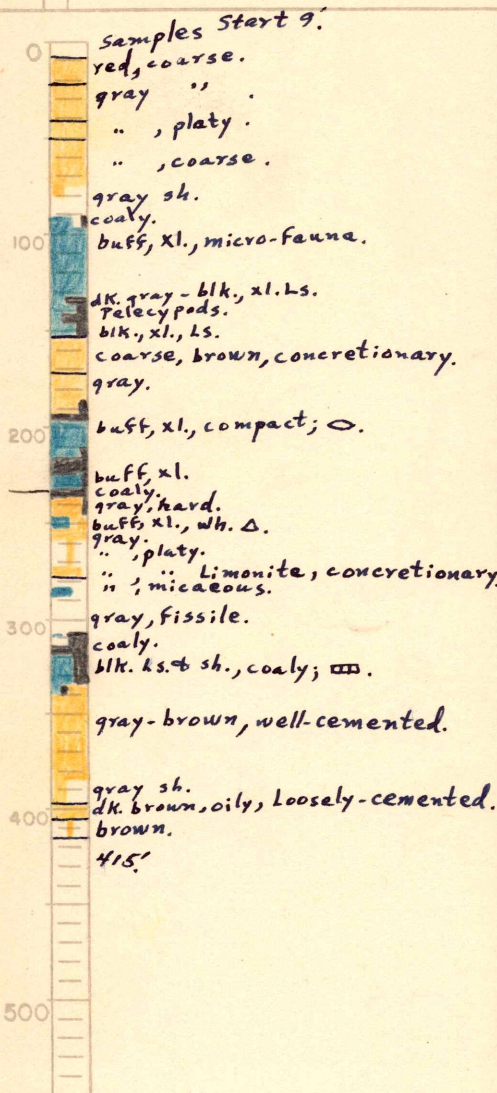 Samples Start 9'.
0
red, coarse.
gray ,, .
,, , platy .
,, , coarse .
gray sh.
coaly.
100
buff, xl., micro-fauna.
dk. gray - blk., xl. Ls.
Pelecypods.
blk., xl., Ls.
coarse, brown, concretionary.
gray.
200
buff, xl., compact; ⬭.
buff, xl.
coaly.
gray, hard.
buff, xl., wh. Δ.
gray.
,, , platy.
,, , ,, Limonite, concretionary,
,, , micaeous.
300
gray, fissile.
coaly.
blk. Ls. & sh., coaly; .
gray-brown, well-cemented.
gray sh.
dk. brown, oily, Loosely-cemented.
400
brown.
415'.
500